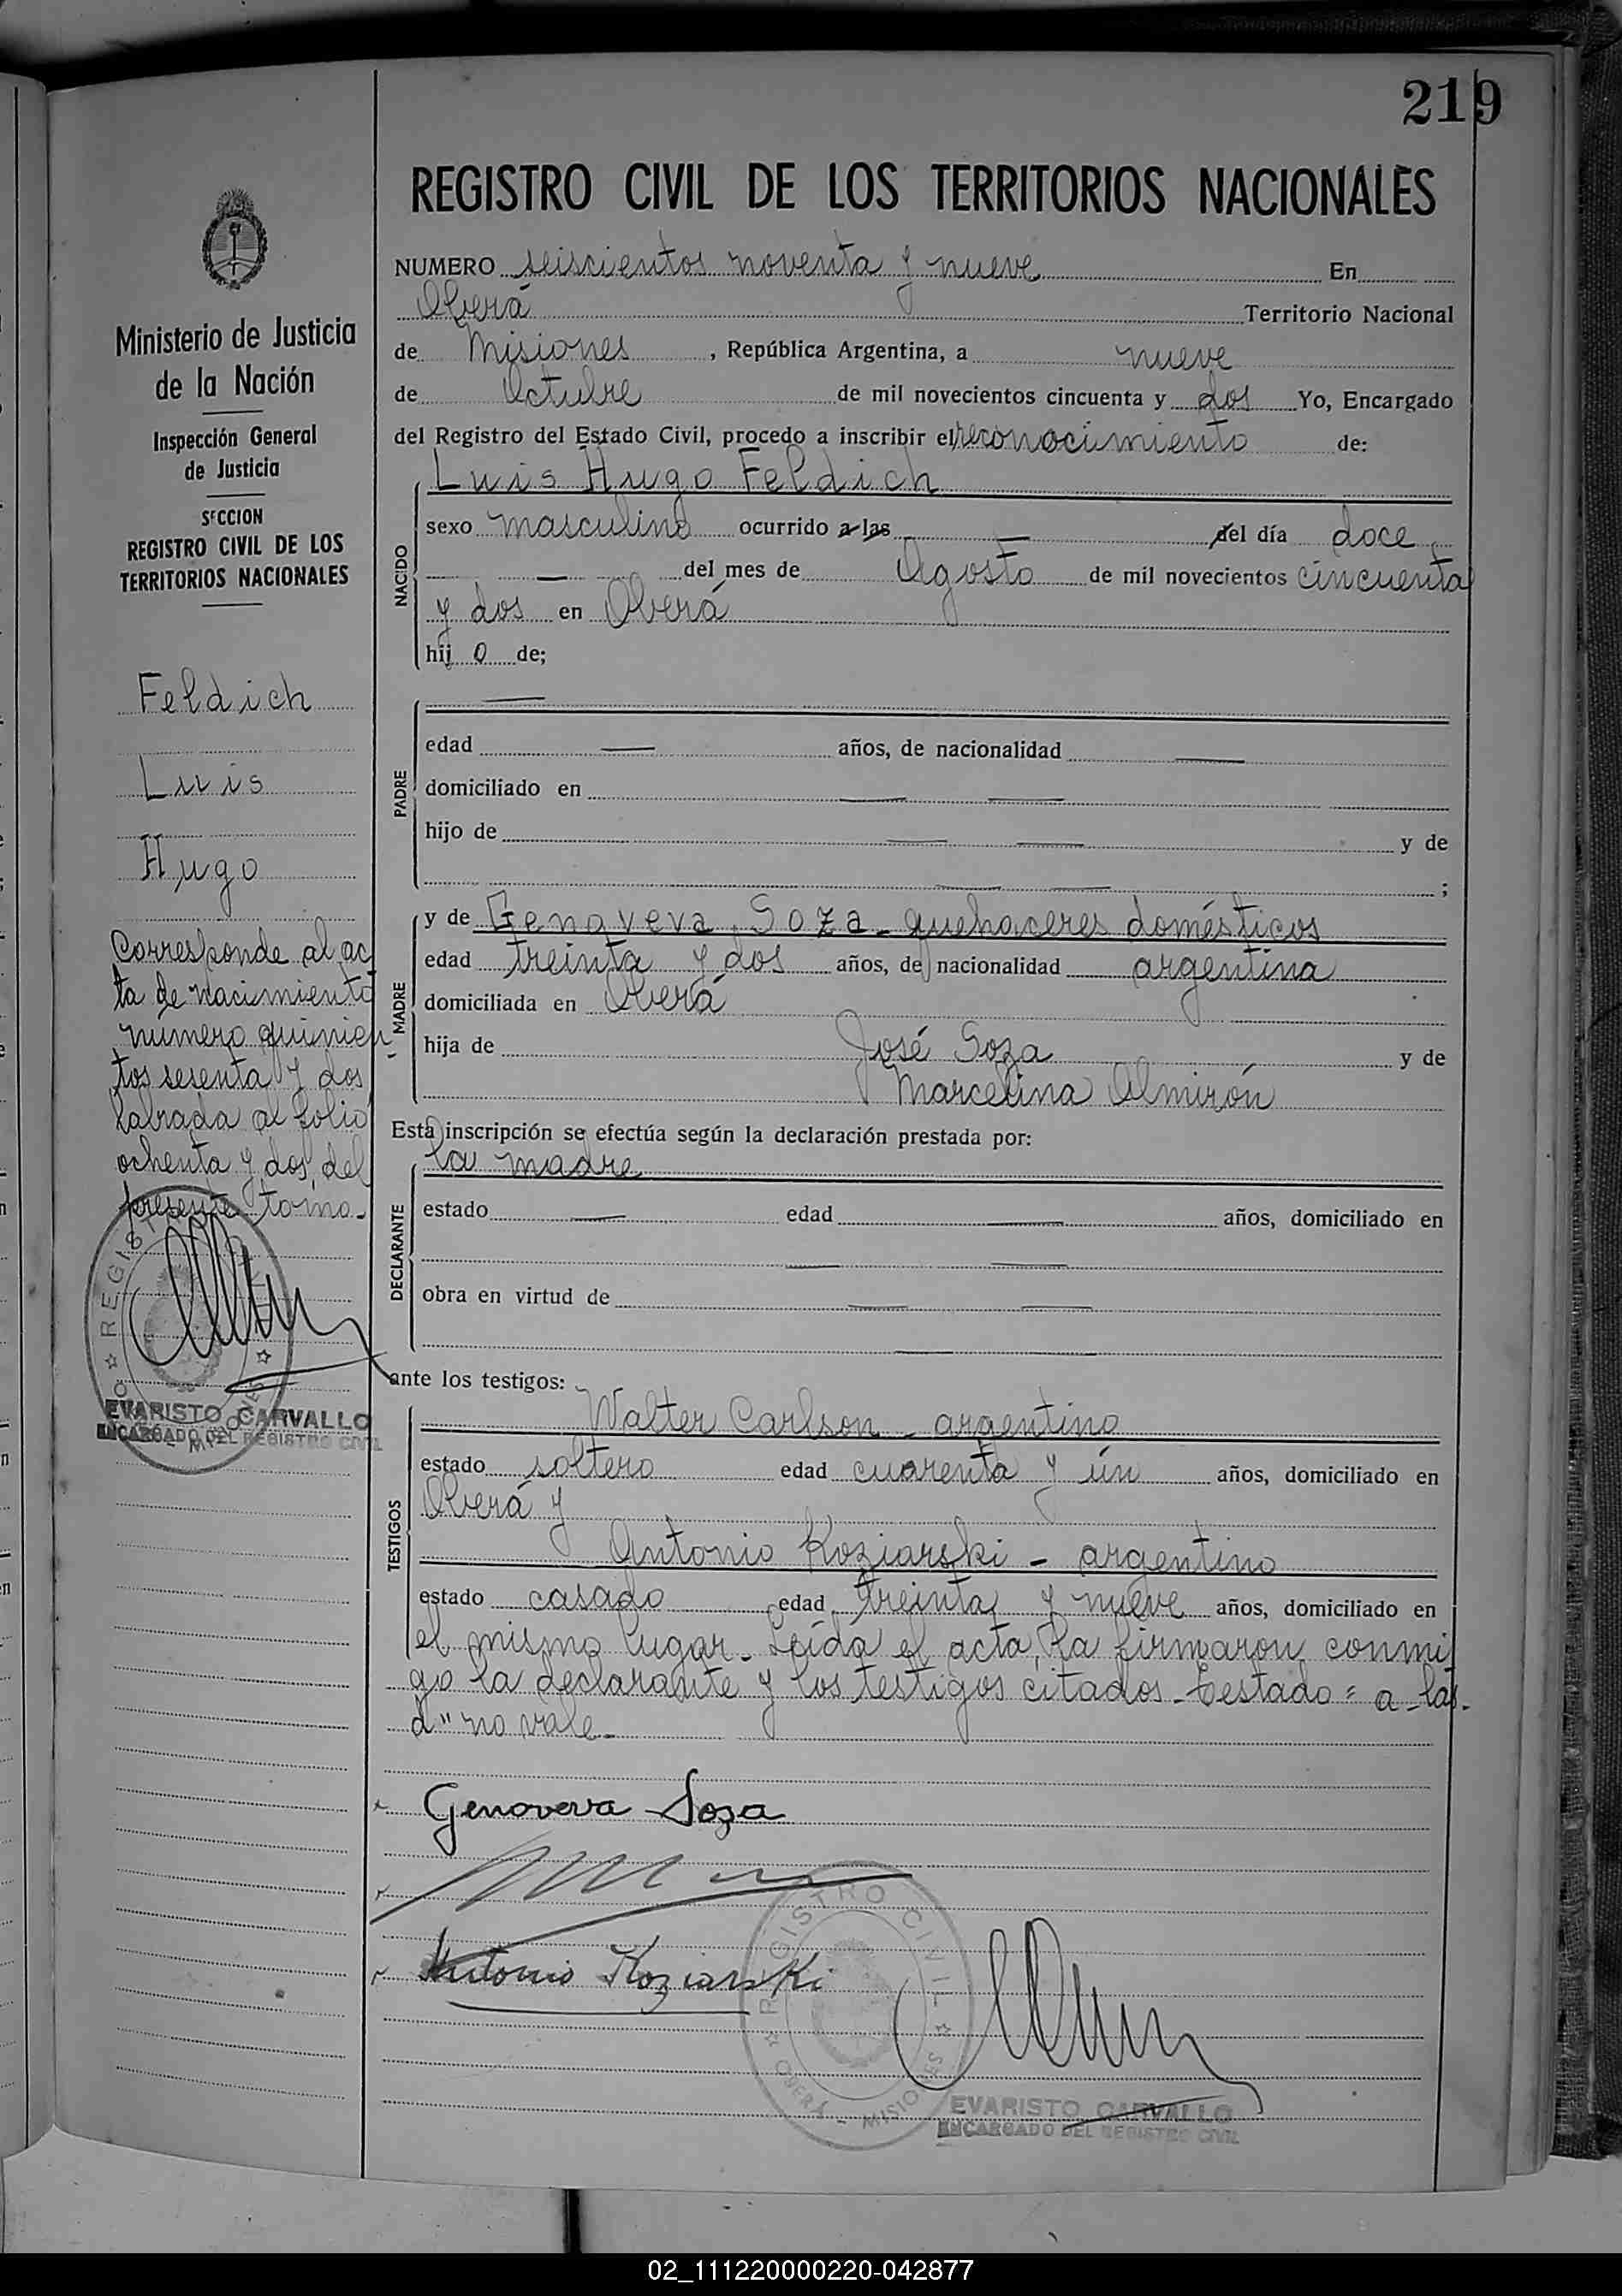 219
REGISTRO CIVIL DE LOS TERRITORIOS NACIONALES
NUMERO seiscientos noventa y nueve En
Oberá Territorio Nacional
de Misiones, República Argentina, a nueve
de Octubre de mil novecientos cincuenta y dos Yo, Encargado
del Registro del Estado Civil, procedo a inscribir el reconocimiento de:
Luis Hugo Feldich
NACIDO
sexo masculino ocurrido a las — del día doce
— del mes de Agosto de mil novecientos cincuenta
y dos en Oberá
hij o de;
PADRE
—
edad — años, de nacionalidad —
domiciliado en — —
hijo de — — y de
— — ;
MADRE
y de Genoveva Soza - quehaceres domésticos
edad treinta y dos años, de nacionalidad argentina
domiciliada en Oberá
hija de José Soza y de
Marcelina Almirón
Esta inscripción se efectúa según la declaración prestada por:
DECLARANTE
la madre
estado — edad — años, domiciliado en
— —
obra en virtud de — —
—
ante los testigos:
TESTIGOS
Walter Carlson - argentino
estado soltero edad cuarenta y ún años, domiciliado en
Oberá y
Antonio Koziarski - argentino
estado casado edad treinta y nueve años, domiciliado en
el mismo lugar. Leída el acta, la firmaron conmi
go la declarante y los testigos citados - Testado = a - las -
d" no vale -
Genoveva Soza
Antonio Koziarski
REGISTRO CIVIL
OBERÁ - MISIONES
EVARISTO CARVALLO
ENCARGADO DEL REGISTRO CIVIL
Ministerio de Justicia
de la Nación
Inspección General
de Justicia
SECCION
REGISTRO CIVIL DE LOS
TERRITORIOS NACIONALES
Feldich
Luis
Hugo
Corresponde al ac
ta de nacimiento
número quinien
tos sesenta y dos
labrada al folio
ochenta y dos, del
presente tomo -
EVARISTO CARVALLO
ENCARGADO DEL REGISTRO CIVIL
02_111220000220-042877